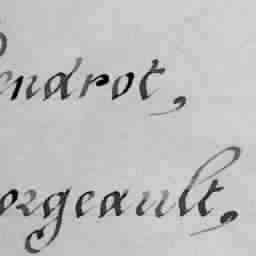 endrot,
orgeault,